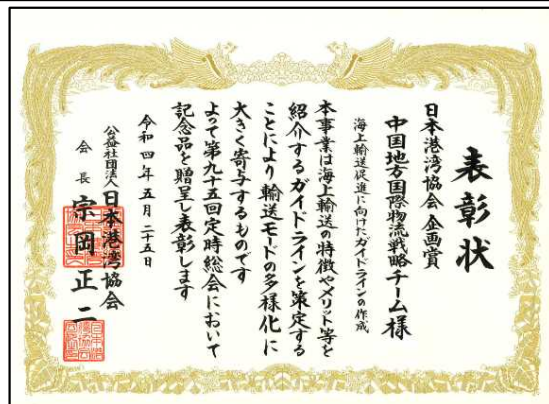 表彰状
日本港湾協会 企画賞
中国地方国際物流戦略チーム様
海上輸送促進に向けたガイドラインの作成
本事業は海上輸送の特徴やメリット等を
紹介するガイドラインを策定する
ことにより輸送モードの多様化に
大きく寄与するものです
よって第九十五回定時総会において
記念品を贈呈し表彰します
令和四年五月二十五日
公益社団法人日本港湾協会
会長 宗岡正二